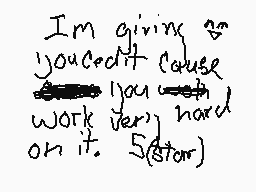 Im giving
you cedit cause
you
work very hard
on it. 5(star)